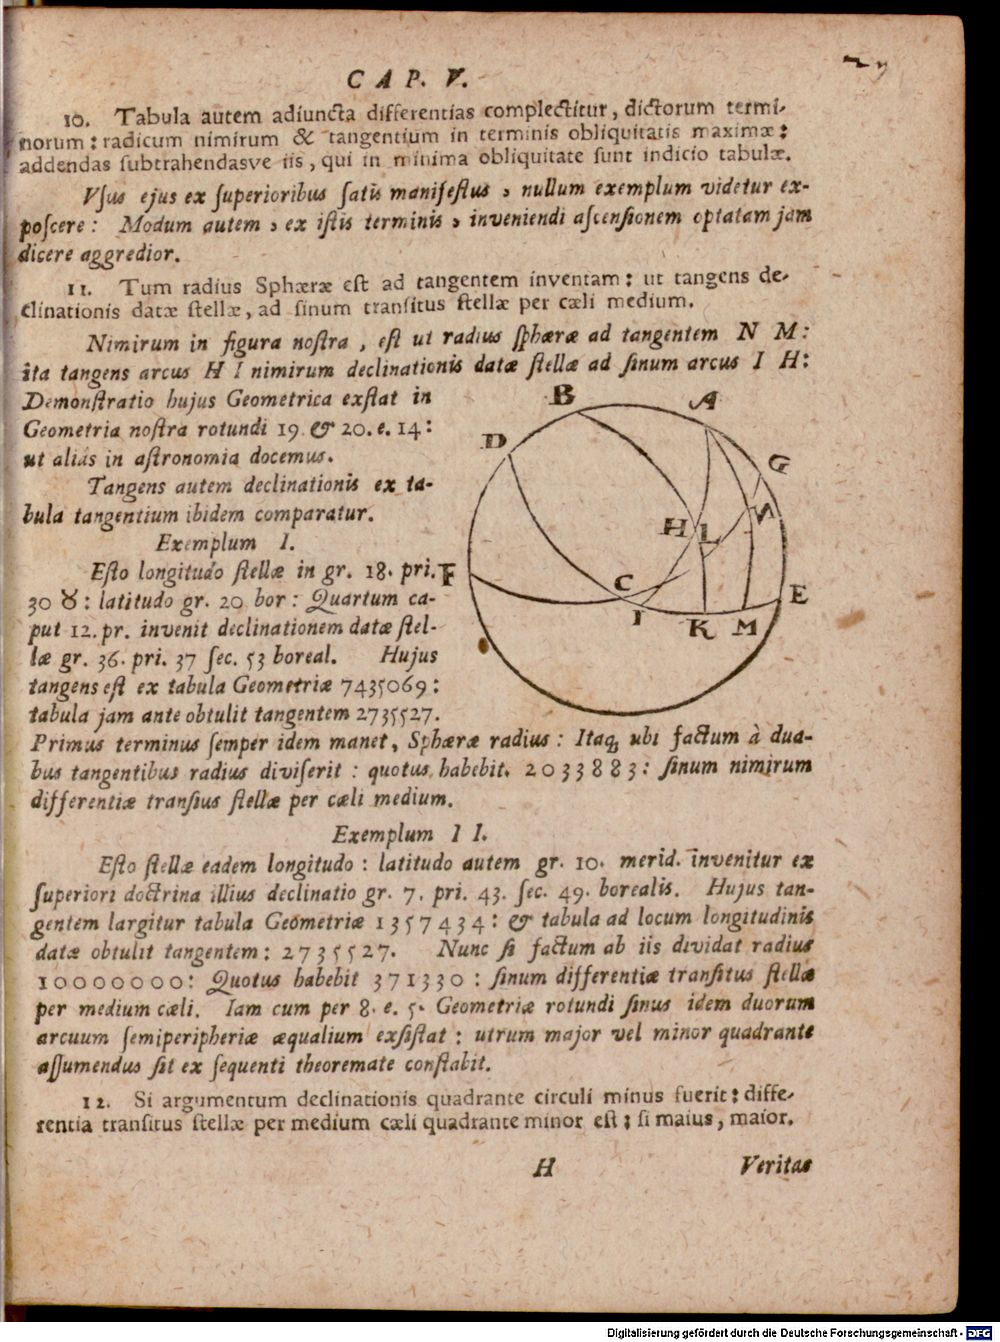 CAP. V.
10. Tabula autem adiuncta differentias complectitur, dictorum termi-
norum: radicum nimirum & tangentium in terminis obliquitatis maximæ:
addendas subtrahendasve iis, qui in minima obliquitate sunt indicio tabulæ.
Vſus ejus ex ſuperioribus ſatis manifeſtus, nullum exemplum videtur ex-
poſcere: Modum autem, ex iſtis terminis, inveniendi aſcenſionem optatam jam
dicere aggredior.
11. Tum radius Sphæræ eſt ad tangentem inventam: ut tangens de-
clinationis datæ ſtellæ, ad ſinum tranſitus ſtellæ per cæli medium.
Nimirum in figura noſtra, eſt ut radius ſphæræ ad tangentem N M:
ita tangens arcus H I nimirum declinationis datæ ſtellæ ad ſinum arcus I H:
Demonſtratio hujus Geometrica exſtat in
Geometria noſtra rotundi 19. & 20. e. 14:
ut aliàs in aſtronomia docemus.
Tangens autem declinationis ex ta-
bula tangentium ibidem comparatur.
Exemplum I.
Eſto longitudo ſtellæ in gr. 18. pri.
30 ♉: latitudo gr. 20 bor: Quartum ca-
put 12. pr. invenit declinationem datæ ſtel-
læ gr. 36. pri. 37 ſec. 53 boreal. Hujus
tangens eſt ex tabula Geometriæ 7435069:
tabula jam ante obtulit tangentem 2735527.
B A D G H L N F C E I K M
Primus terminus ſemper idem manet, Sphæræ radius: Itaq; ubi factum à dua-
bus tangentibus radius diviſerit: quotus habebit. 2033883: ſinum nimirum
differentiæ tranſius ſtellæ per cæli medium.
Exemplum II.
Eſto ſtellæ eadem longitudo: latitudo autem gr. 10. merid. invenitur ex
ſuperiori doctrina illius declinatio gr. 7. pri. 43. ſec. 49. borealis. Hujus tan-
gentem largitur tabula Geometriæ 1357434: & tabula ad locum longitudinis
datæ obtulit tangentem: 2735527. Nunc ſi factum ab iis dividat radius
10000000: Quotus habebit 371330: ſinum differentiæ tranſitus ſtellæ
per medium cæli. Iam cum per 8. e. 5. Geometriæ rotundi ſinus idem duorum
arcuum ſemiperipheriæ æqualium exſiſtat: utrum major vel minor quadrante
aſſumendus ſit ex ſequenti theoremate conſtabit.
12. Si argumentum declinationis quadrante circuli minus fuerit: diffe-
rentia tranſitus ſtellæ per medium cæli quadrante minor eſt; ſi maius, maior.
H Veritas
Digitalisierung gefördert durch die Deutsche Forschungsgemeinschaft - DFG